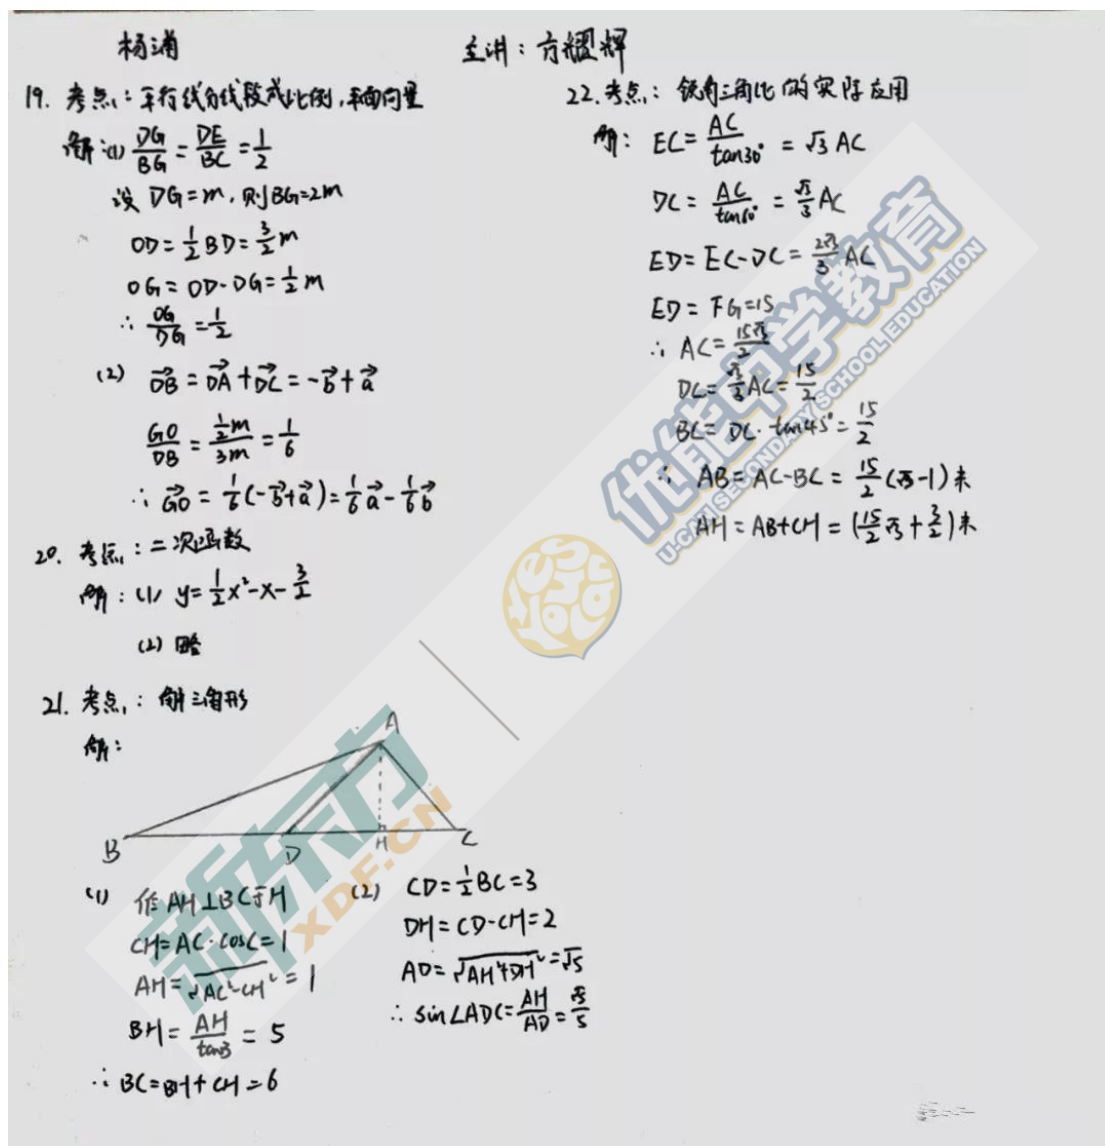 杨浦
主讲：方耀辉
19. 考点：平行线分线段成比例，平面向量
解：(1) DG/BG = DE/BC = 1/2
设 DG=m，则BG=2m
OD = 1/2 BD = 3/2 m
OG = OD-DG = 1/2 m
∴ OG/DG = 1/2
(2) DB→ = DA→ + DC→ = -b→ + a→
GO/DB = (1/2 m)/(3m) = 1/6
∴ GO→ = 1/6(-b→+a→) = 1/6 a→ - 1/6 b→
20. 考点：二次函数
解：(1) y = 1/2 x² - x - 3/2
(2) 略
21. 考点：解三角形
解：
A
B
D
H
C
(1) 作 AH⊥BC于H
CH = AC·cosC = 1
AH = √(AC²-CH²) = 1
BH = AH/tanB = 5
∴ BC = BH + CH = 6
(2) CD = 1/2 BC = 3
DH = CD-CH = 2
AD = √(AH²+DH²) = √5
∴ sin∠ADC = AH/AD = √5/5
22. 考点：锐角三角比的实际应用
解：EC = AC/tan30° = √3 AC
DC = AC/tan60° = √3/3 AC
ED = EC-DC = 2√3/3 AC
ED = FG = 15
∴ AC = 15√3/2
DC = √3/3 AC = 15/2
BC = DC·tan45° = 15/2
∴ AB = AC-BC = 15/2(√3-1)米
AH = AB+CH = (15/2 √3 + 3/2)米
新东方
XDF.CN
优能中学教育
U-CAN SECONDARY SCHOOL EDUCATION